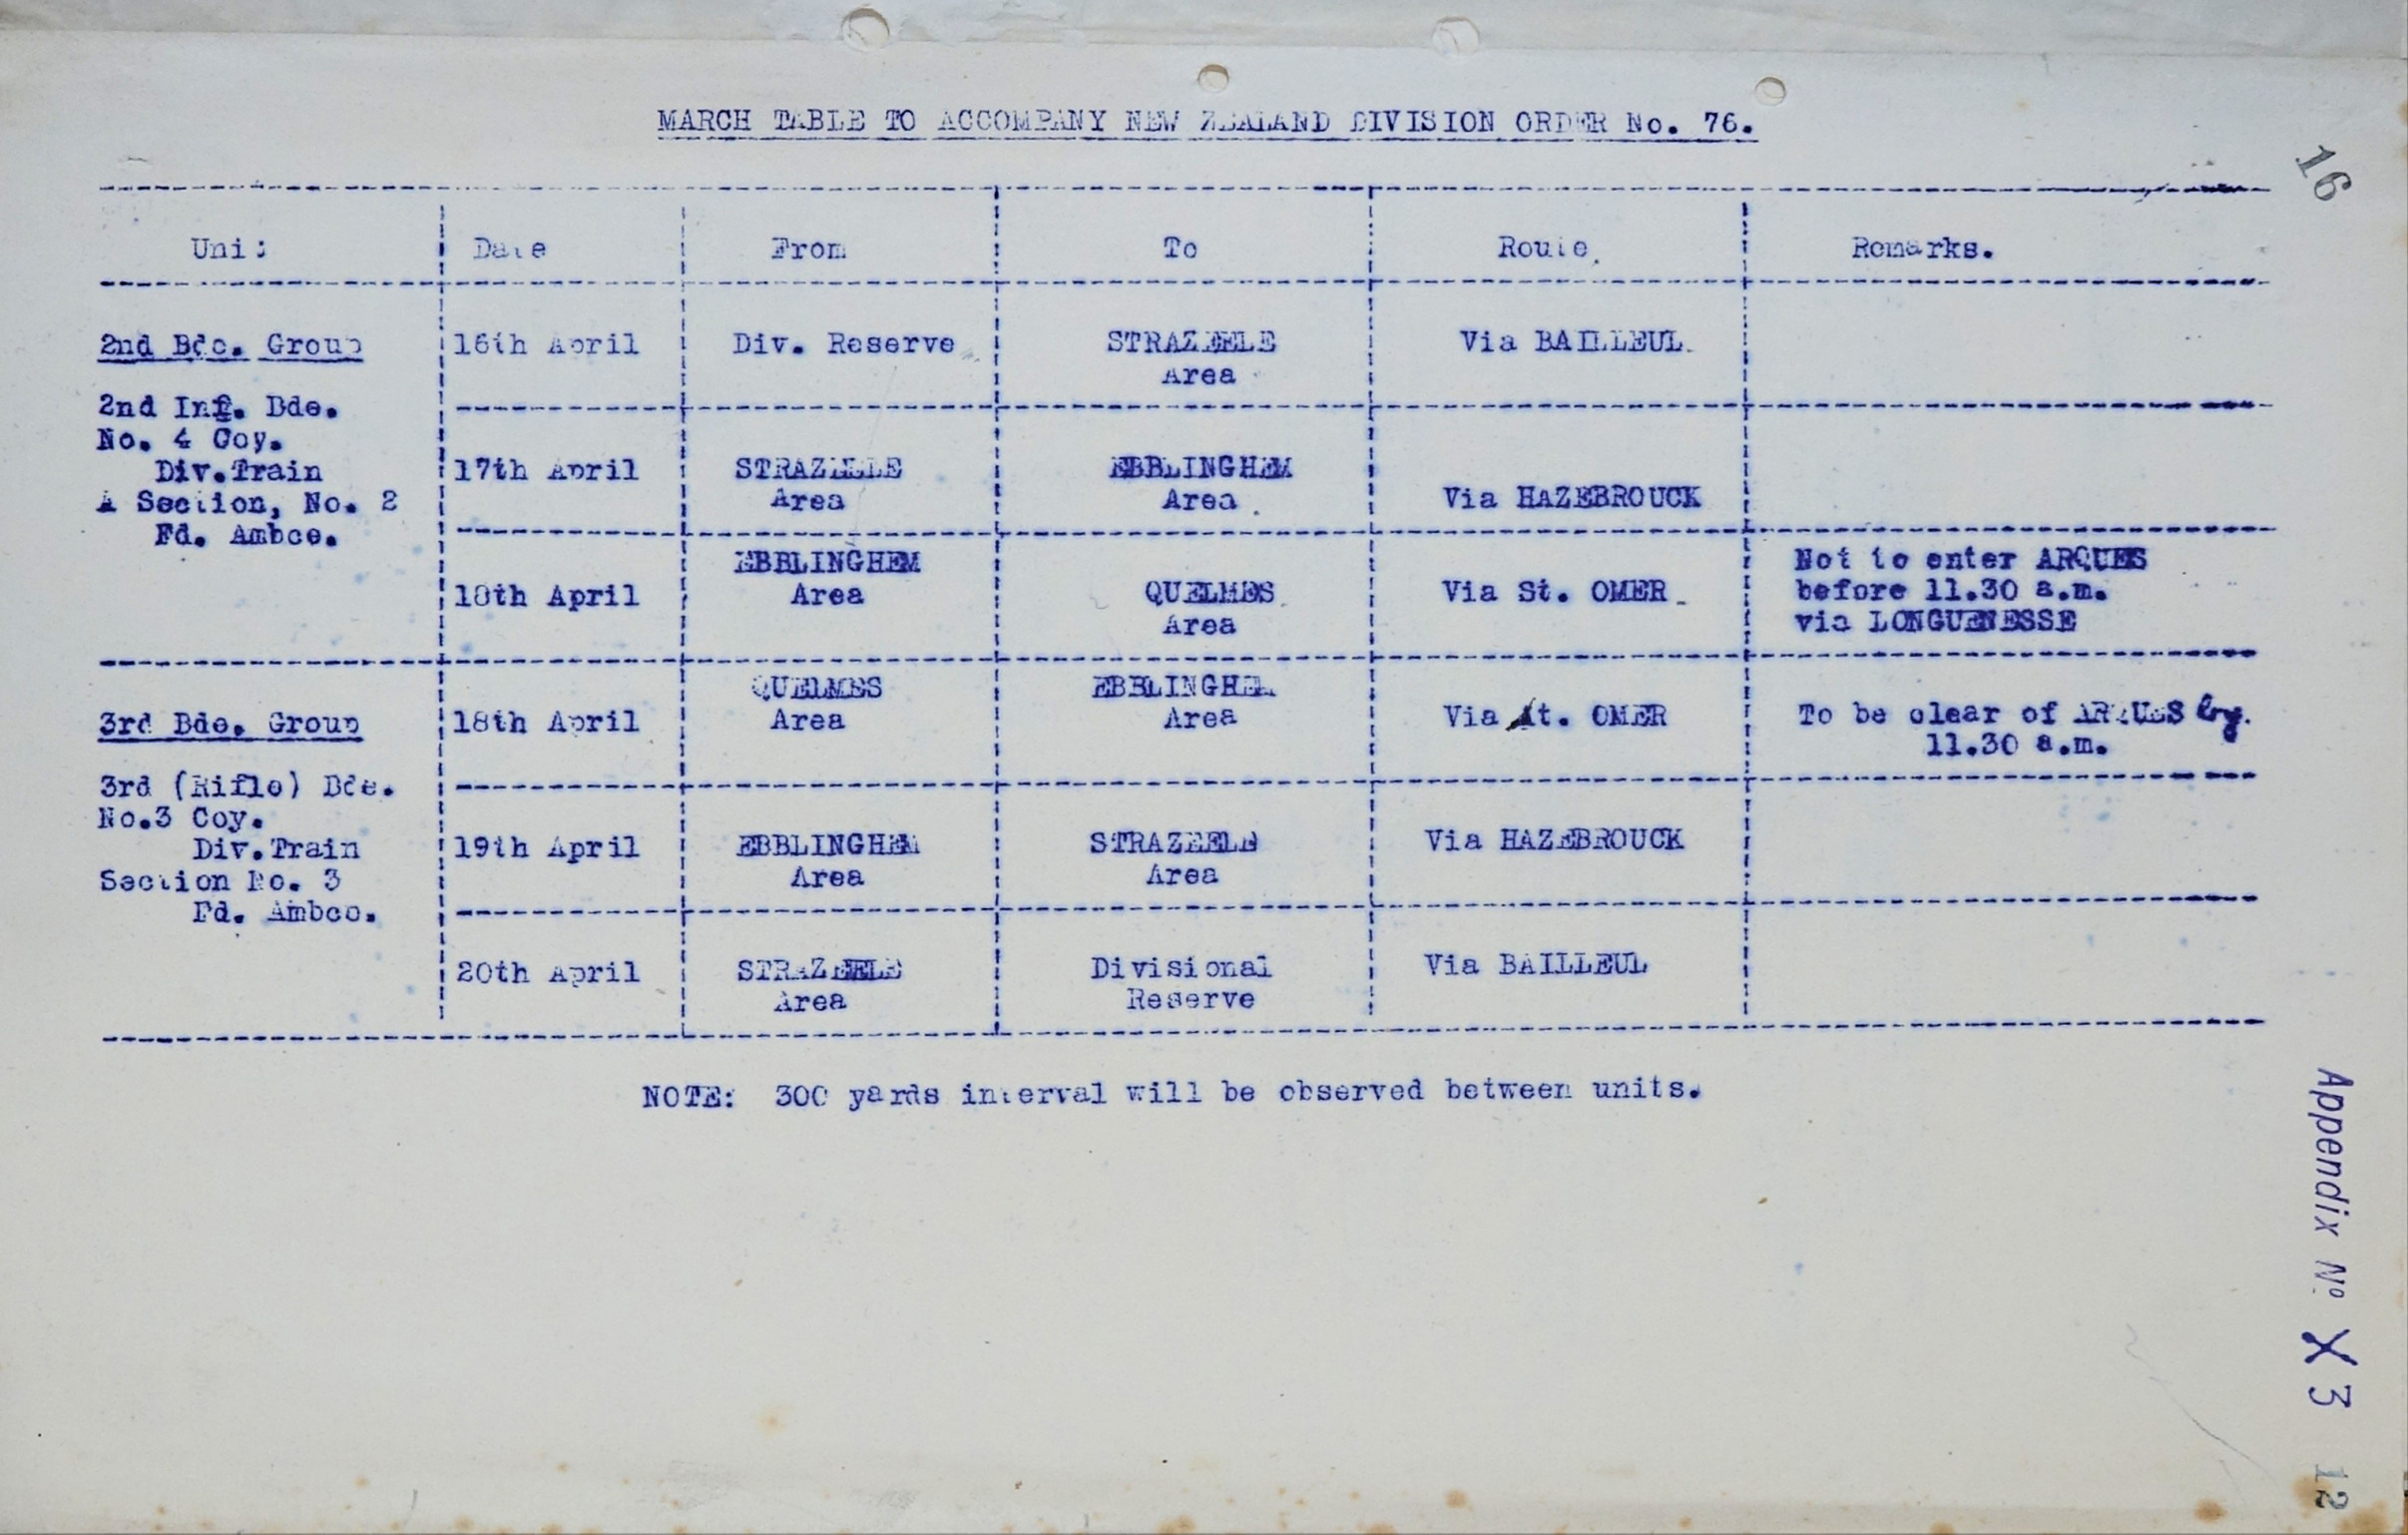 MARCH TABLE TO ACCOMPANY NEW ZEALAND DIVISION ORDER No. 76.
16
Unit Date From To Route. Remarks.
2nd Bde. Group 16th April Div. Reserve STRAZEELE Via BAILLEUL.
Area
2nd Inf. Bde.
No. 4 Coy.
Div.Train 17th April STRAZEELE EBBLINGHEM
A Section, No. 2 Area Area. Via HAZEBROUCK
Fd. Ambce.
EBBLINGHEM Not to enter ARQUES
18th April Area QUELMES Via St. OMER. before 11.30 a.m.
Area via LONGUENESSE
QUELMES EBBLINGHEM
3rd Bde. Group 18th April Area Area Via St. OMER To be clear of ARQUES by.
11.30 a.m.
3rd (Rifle) Bde.
No.3 Coy.
Div.Train 19th April EBBLINGHEM STRAZEELE Via HAZEBROUCK
Section No. 3 Area Area
Fd. Ambce.
20th April STRAZEELE Divisional Via BAILLEUL
Area Reserve
NOTE: 300 yards interval will be observed between units.
Appendix No. X 3
12